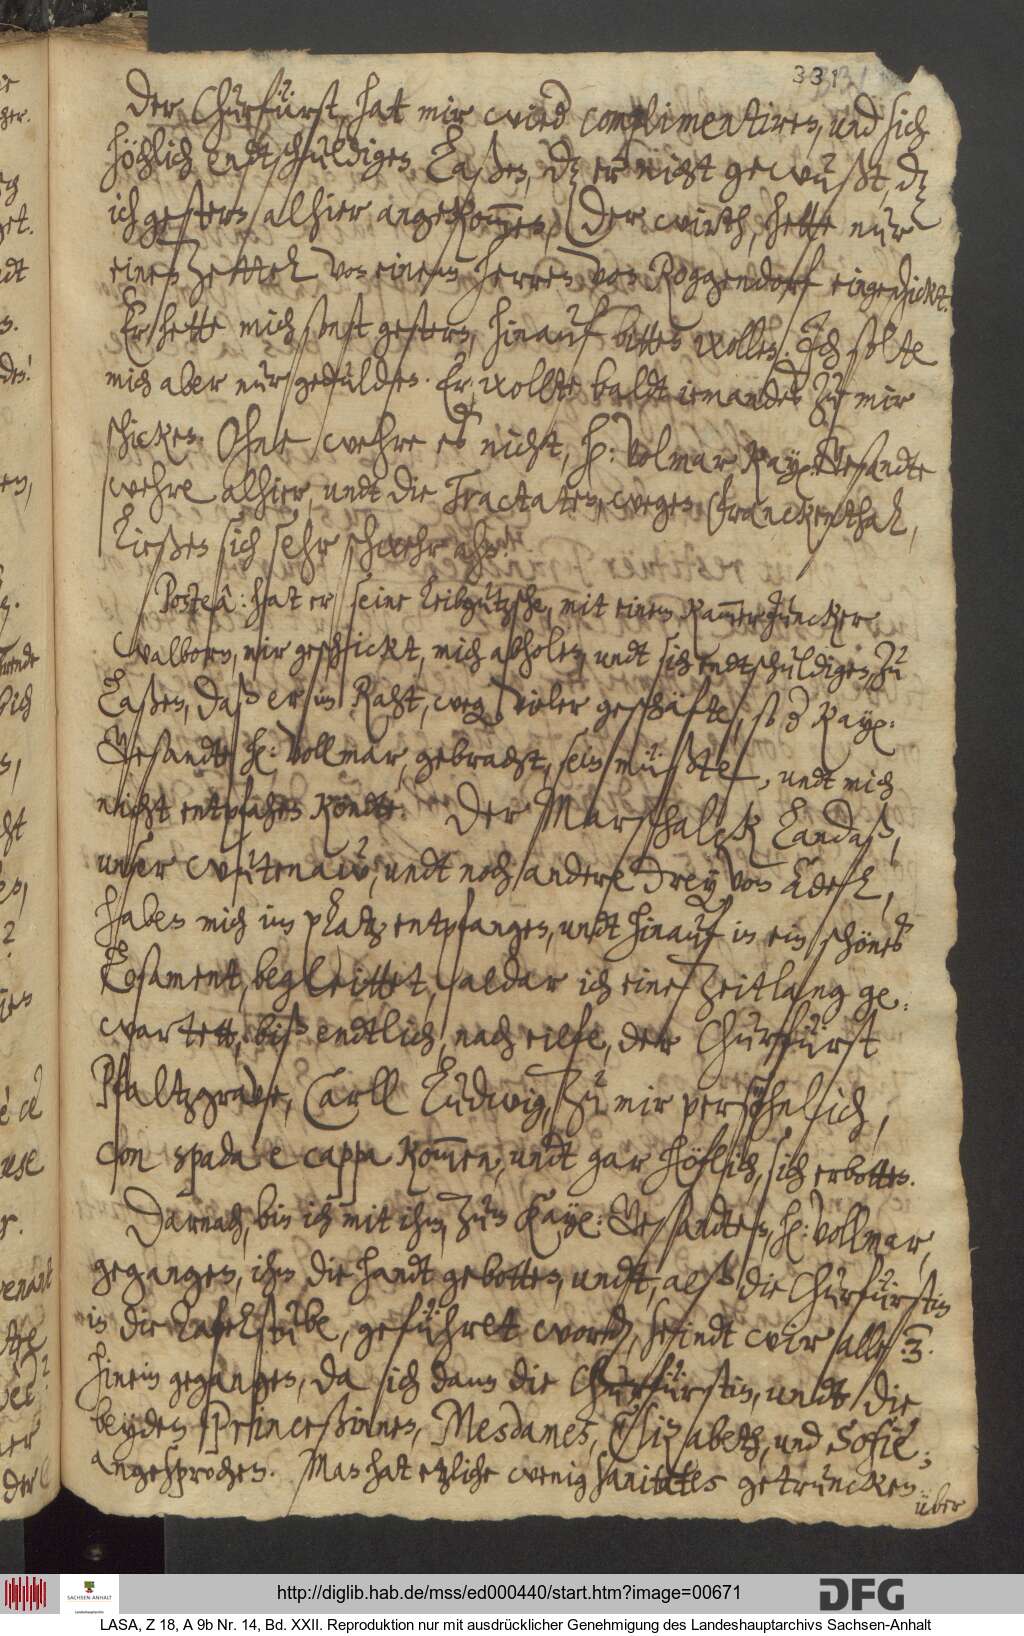 331
Der Churfürst, hat mir wied complimentiren, und sich
höchlich endtschuldigen Laßen, dz er nicht gewußt, dz
ich gestern alhier angekommen, (der wirth, hette nur
einen Zettel von einem Herren von Roggendorf eingeschickt.
Er hette mich sonst gestern, hinauf bitten wollen. Ich solte
mich aber nur gedulden. Er wollte baldt iemandes zu mir
schicken. Ohne wehre es nicht, H: Volmar Kay: Gesandte
wehre alhier, undt die Tractaten, wegen Franckenthal,
ließen sich sehr schwehr ahn.
Posteà: hat er seine Leibgutzsche, mit einem Kammerjuncker
Walborn, mir geschickt, mich abholen, undt sich endtschuldigen, zu
Laßen, daß er im Raht, weg vieler geschäfte, so d Kay:
Gesandte H: Vollmar, gebracht, sein müßte, undt mich
nicht entpfahen köndte. Der Marschalck Landaß,
unser Wutenaw, undt noch andere drey von Adel,
haben mich im platz entpfangen, undt hinauf in ein schönes
Losament, begleittet, aldar ich eine Zeitlang ge-
wartett, biß endtlich, nach eilfe, der Churfürst
Pfaltzgrave, Carll Ludwig, zu mir persöhnlich,
con spada e cappa kommen, undt gar höflich, sich erbotten.
Darnach, bin ich mit ihm, zum Kay: Gesandten, H: Vollmar,
gegangen, ihm die handt gebotten, undt, alß die Churfürstin
in die Tafelstube, geführet word, seindt wir alle 3.
hinein gegangen, da ich dann die Churfürstin, undt die
beyden Princeßinnen, Mesdames, Elizabeth, und Sofie,
angesprochen. Man hat etzliche wenig sanitates getruncken
über
http://diglib.hab.de/mss/ed000440/start.htm?image=00671
DFG
SACHSEN-ANHALT
Landeshauptarchiv
LASA, Z 18, A 9b Nr. 14, Bd. XXII. Reproduktion nur mit ausdrücklicher Genehmigung des Landeshauptarchivs Sachsen-Anhalt